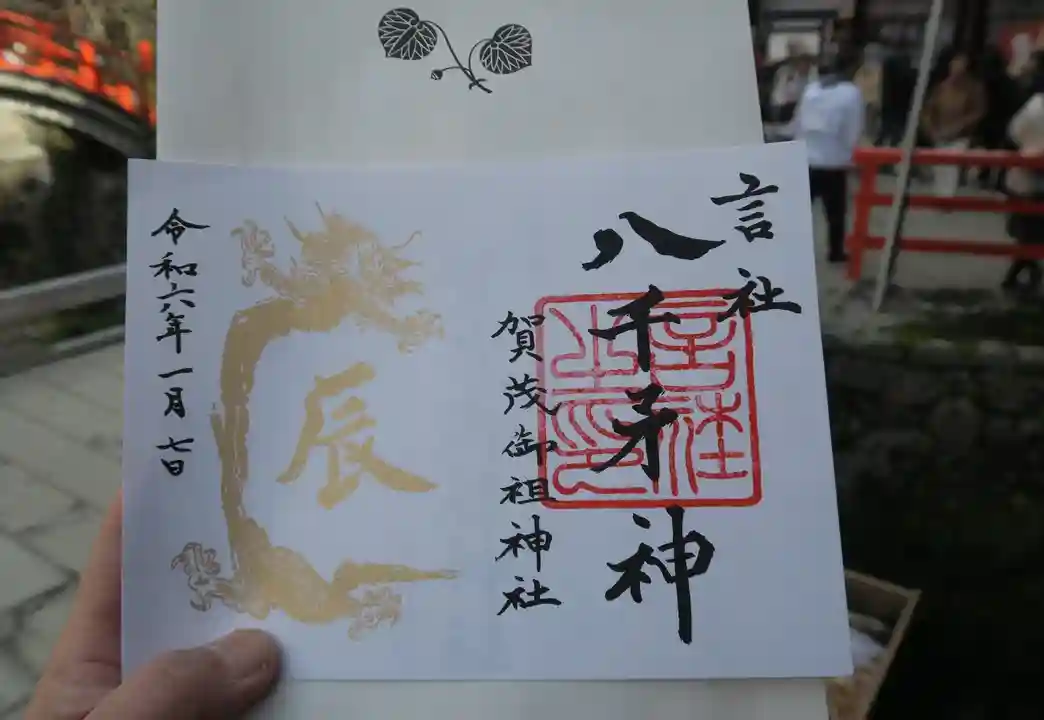 言社
八千矛神
賀茂御祖神社
言社之印
辰
令和六年一月七日